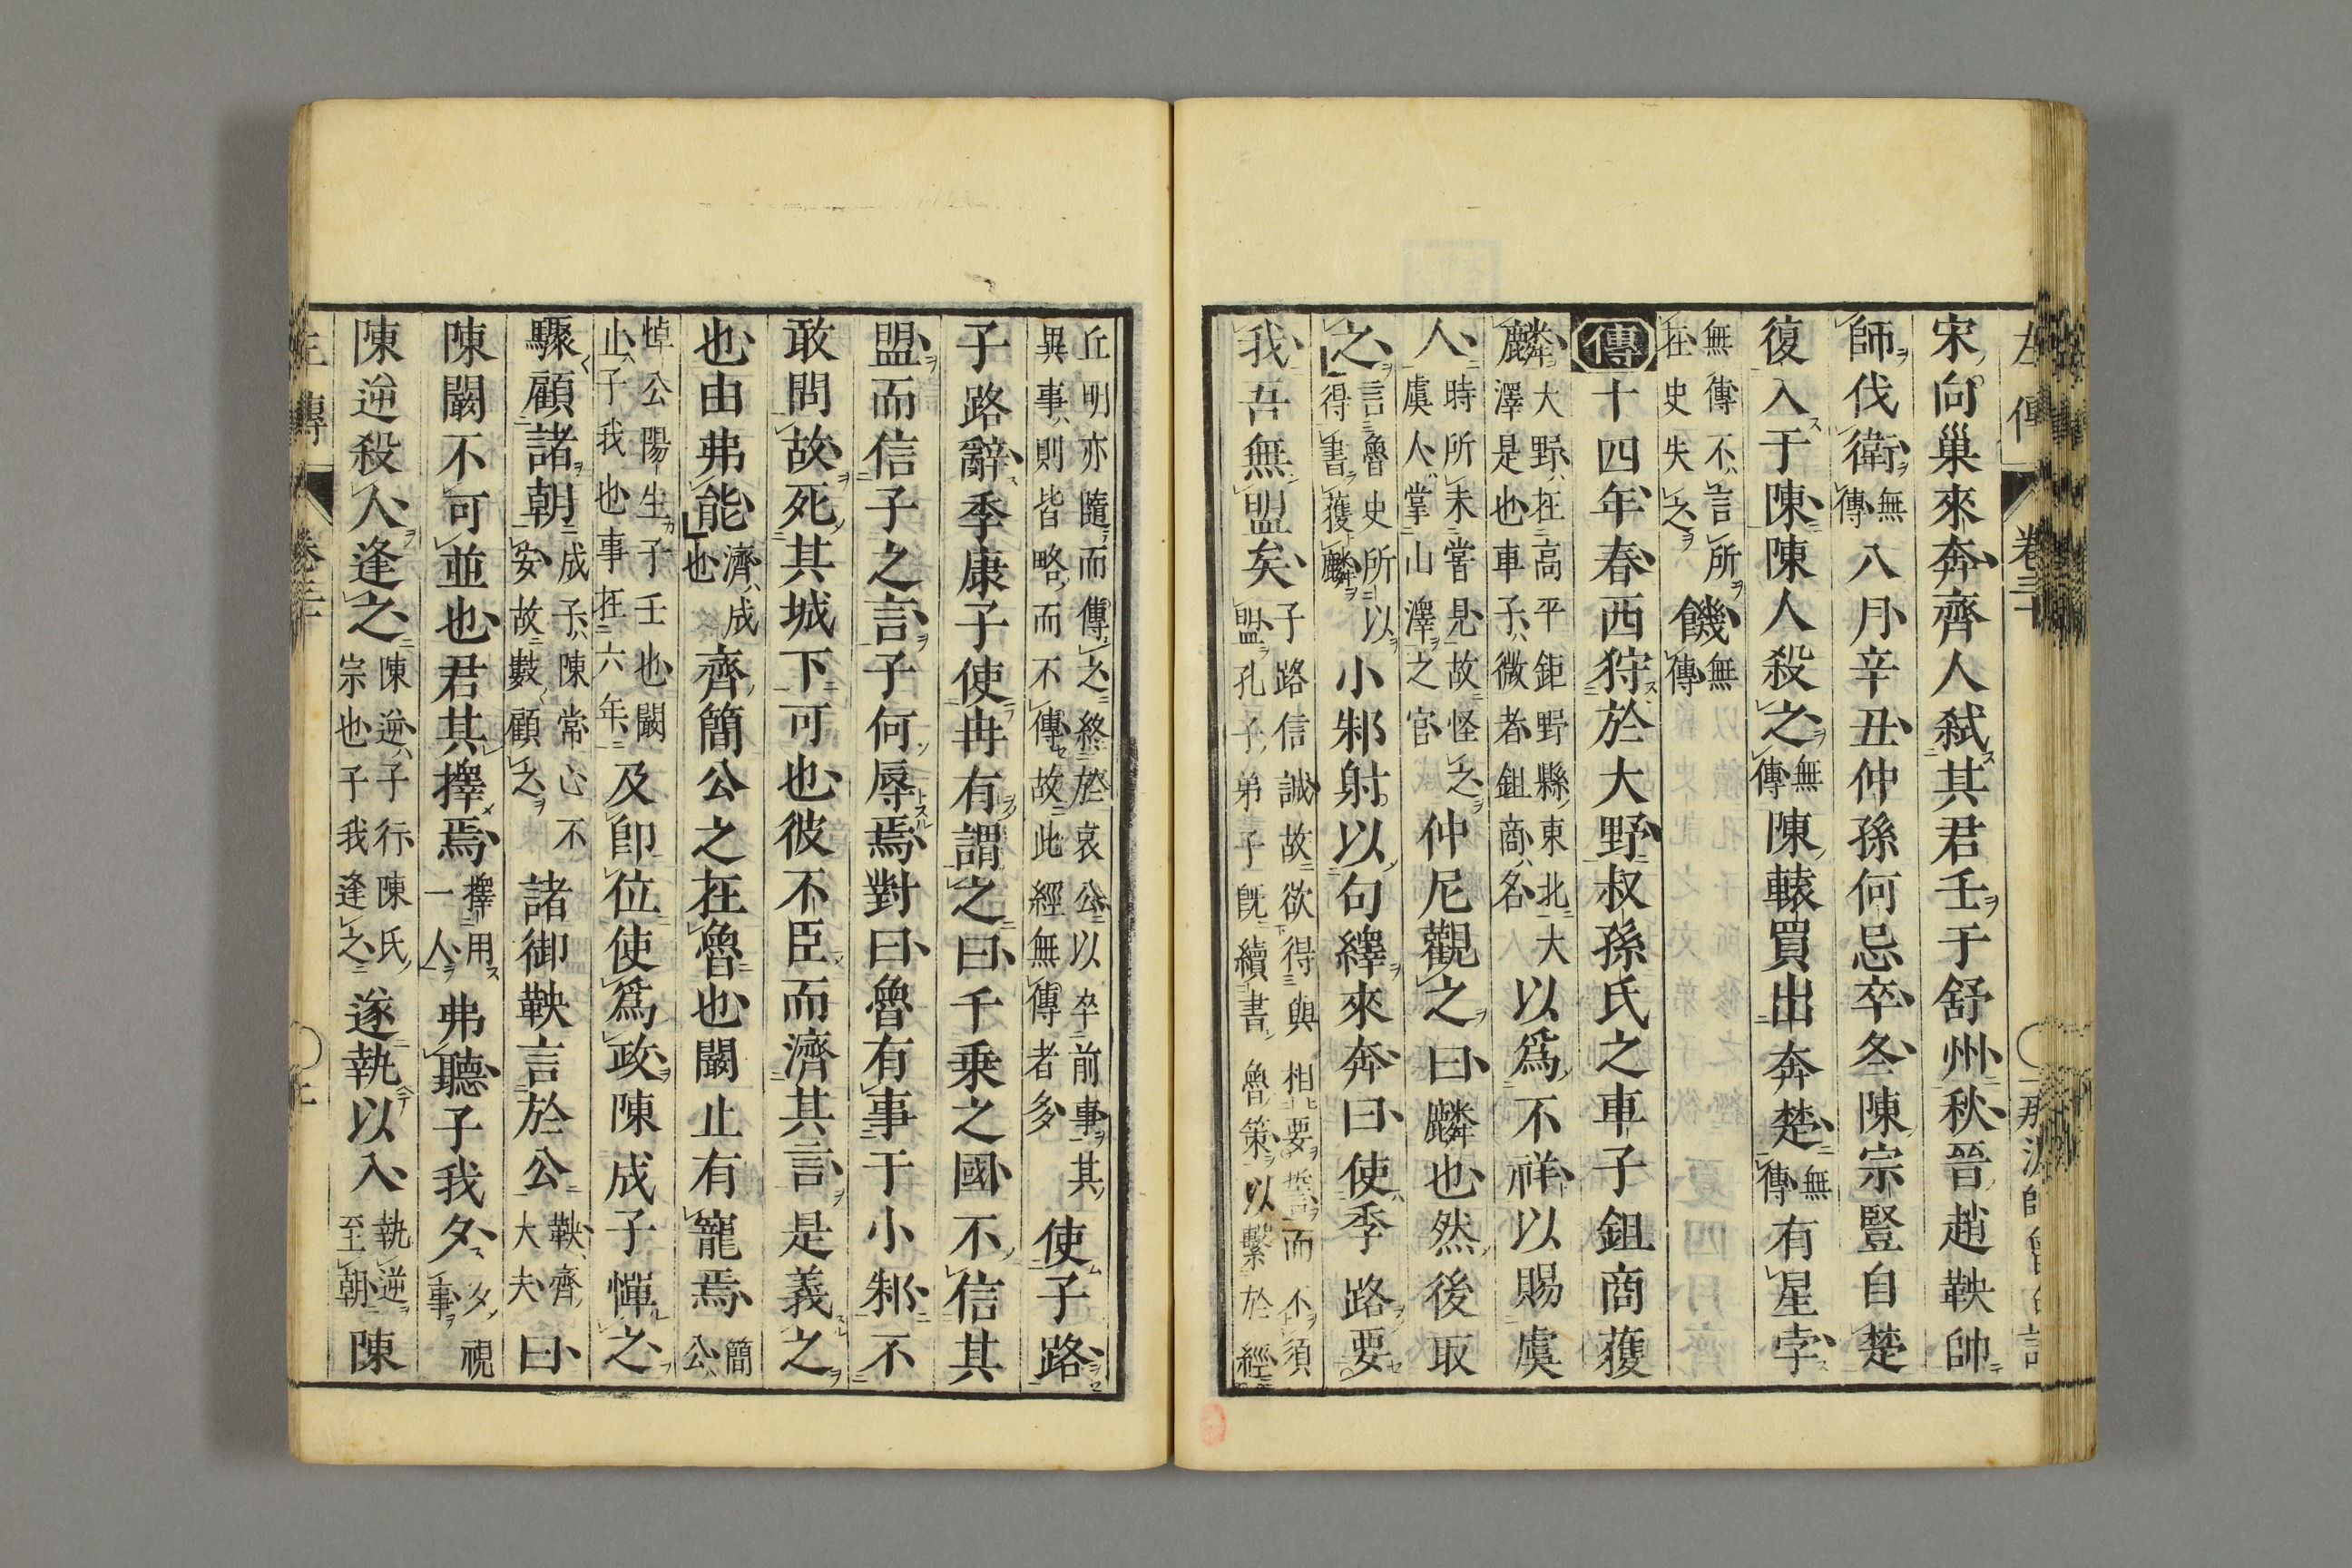 左傳 卷三十
宋向巢來奔齊人弑其君壬于舒州秋晉趙鞅帥
師伐衛無傳八月辛丑仲孫何忌卒冬陳宗豎自楚
復入于陳陳人殺之無傳陳轅買出奔楚無傳有星孛
無傳不言所在史失之饑無傳
傳十四年春西狩於大野叔孫氏之車子鉏商獲
麟大野在高平鉅野縣東北大澤是也車子微者鉏商名以爲不祥以賜虞
人時所未嘗見故怪之虞人掌山澤之官仲尼觀之曰麟也然後取
之言魯史所以得書獲麟小邾射以句繹來奔曰使季路要
我吾無盟矣子路信誠故欲得與相要誓而不須盟孔子弟子既續書魯策以繫於經
丘明亦隨而傳之終於哀公以卒前事其異事則皆略而不傳故此經無傳者多使子路
子路辭季康子使冉有謂之曰千乗之國不信其
盟而信子之言子何辱焉對曰魯有事于小邾不
敢問故死其城下可也彼不臣而濟其言是義之
也由弗能濟成也齊簡公之在魯也闞止有寵焉簡公
悼公陽生子壬也闞止子我也事在六年及卽位使爲政陳成子憚之
驟顧諸朝成子陳常心不安故數顧之諸御鞅言於公鞅齊大夫曰
陳闞不可並也君其擇焉擇用一人弗聽子我夕夕視事
陳逆殺人逢之陳逆子行陳氏宗也子我逢之遂執以入執逆至朝陳
左傳 卷三十